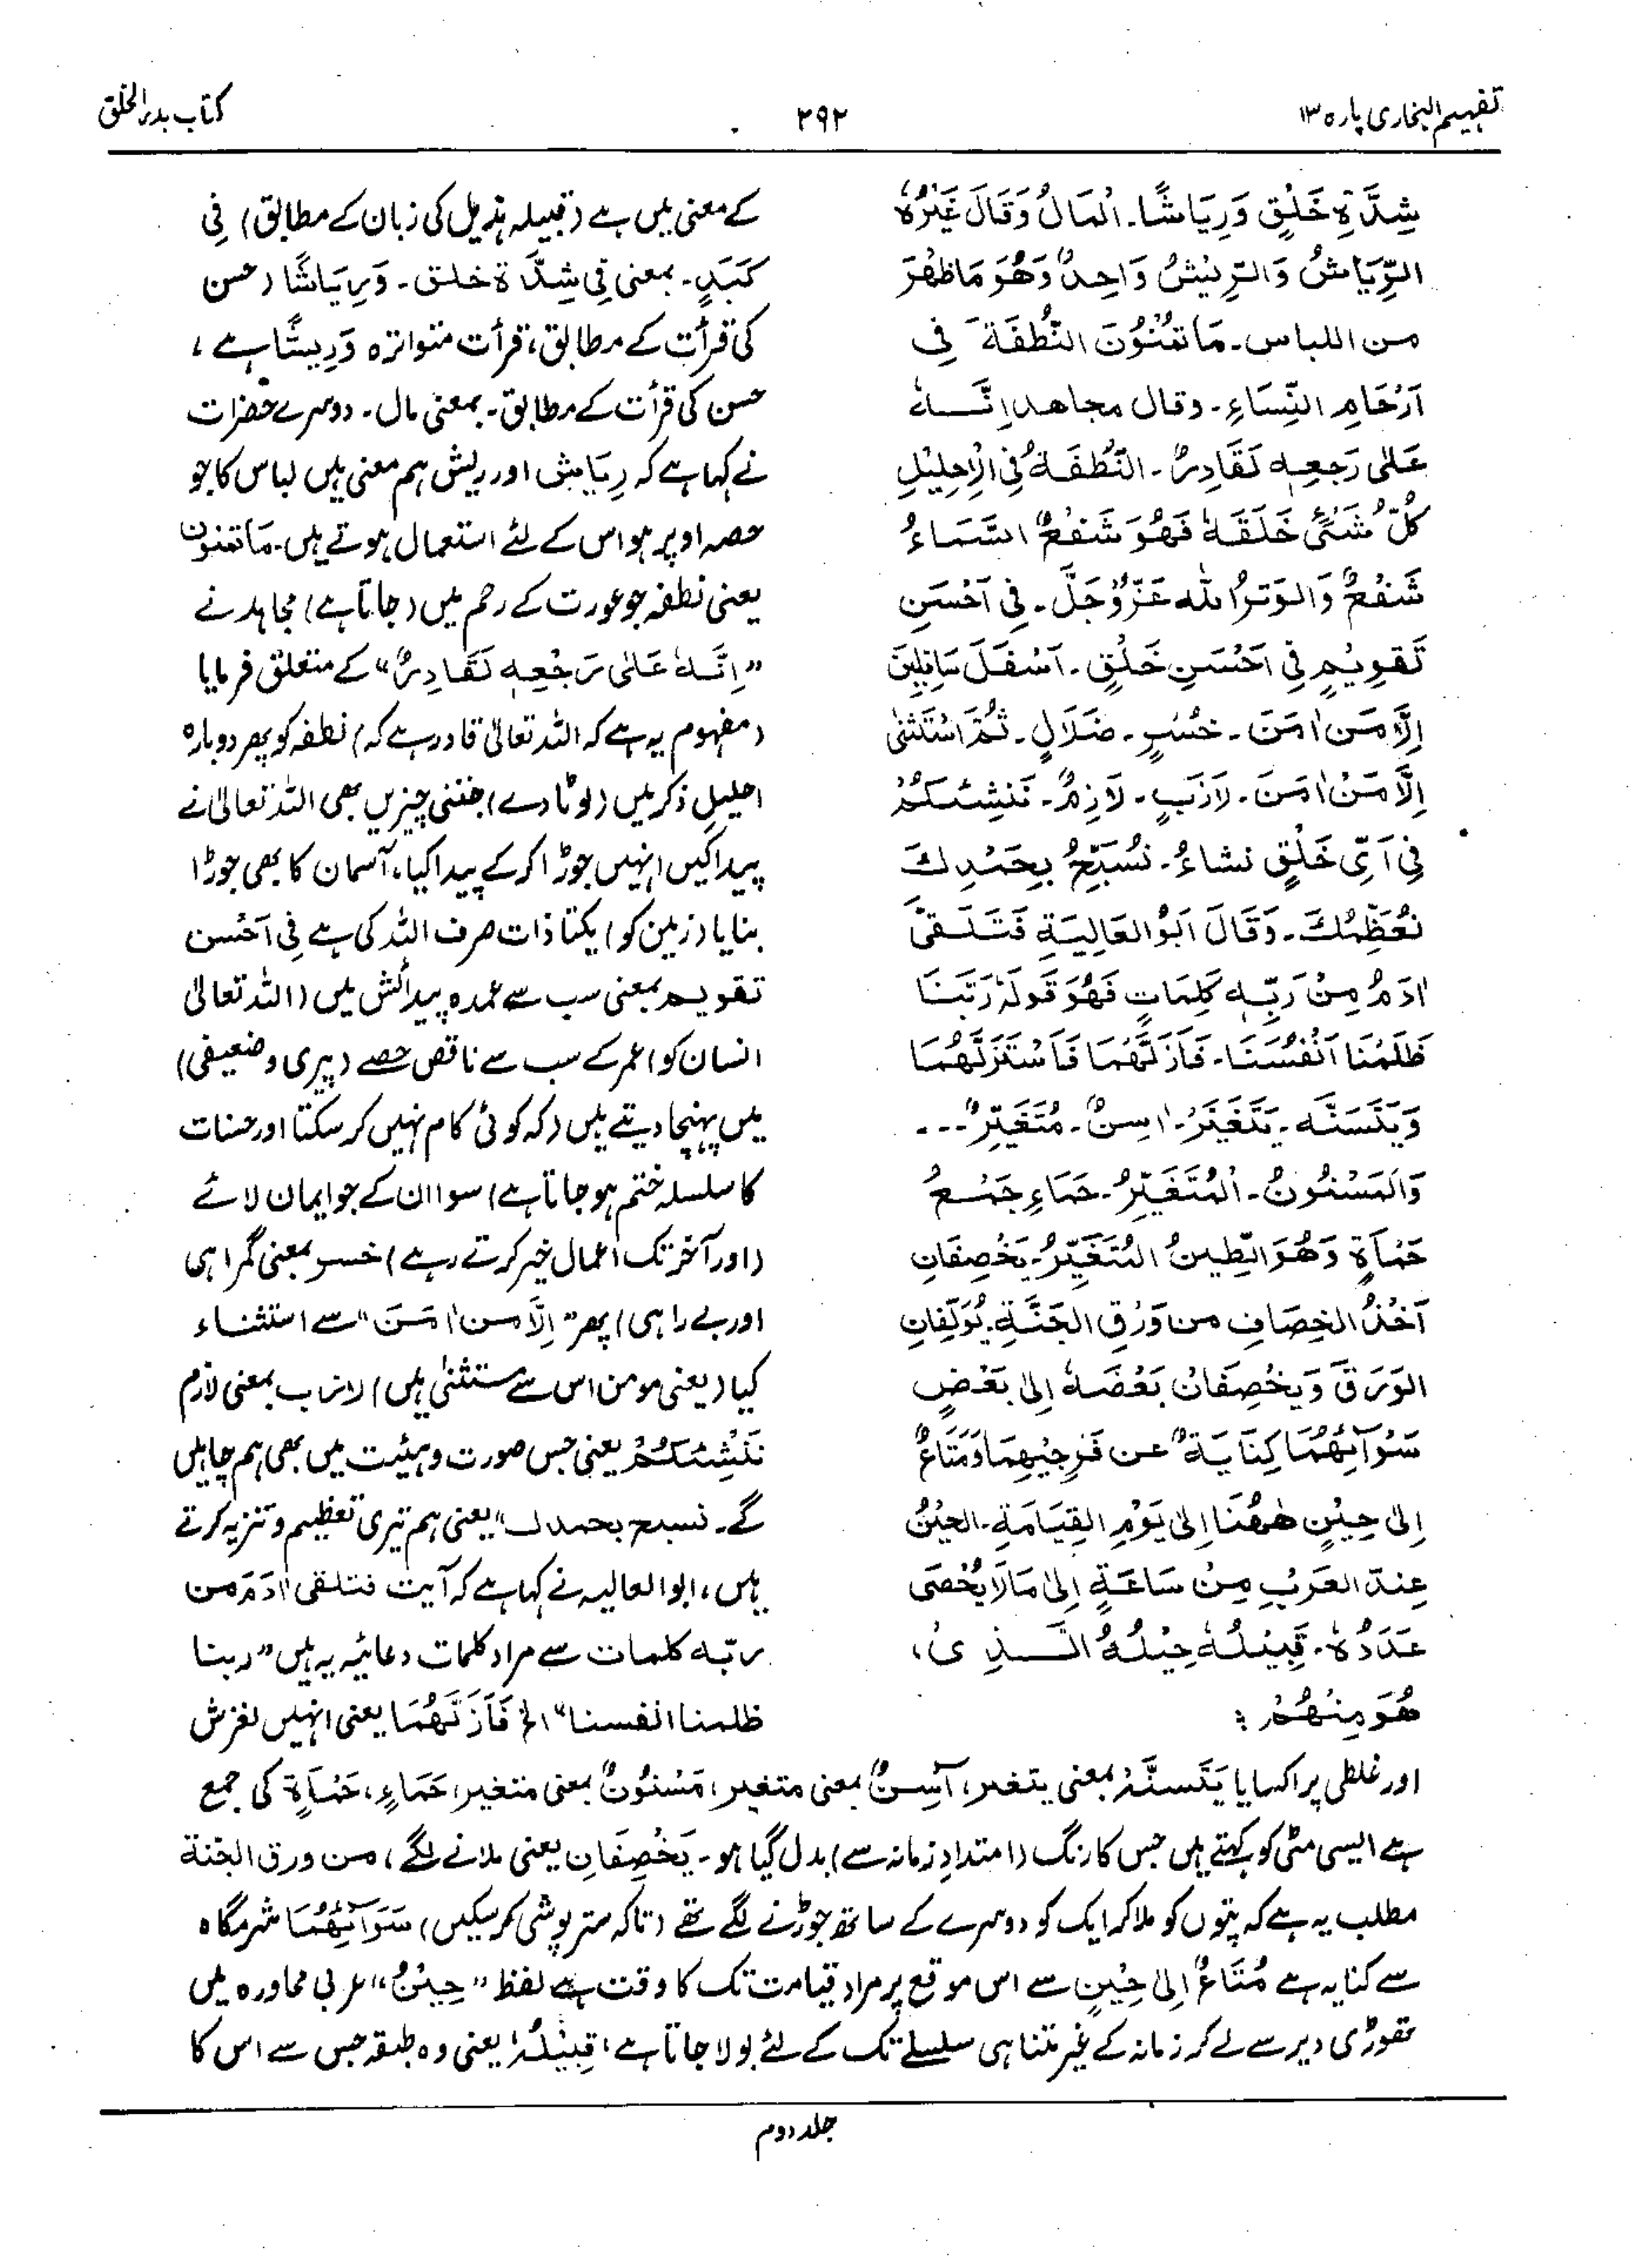 تفہیم البخاری پارہ ۱۳
۲۹۲
کتاب بدء الخلق
شِدَّةِ خَلْقٍ وَرِيَاشًا۔ اَلْمَالُ وَقَالَ غَيْرُهٗ
الرِّيَاشُ وَالرِّيْشُ وَاحِدٌ وَهُوَ مَا ظَهَرَ
من اللباس۔ مَا تُمْنُوْنَ النُّطْفَةَ فِي
اَرْحَامِ النِّسَاءِ۔ وقال مجاهد اِنَّهٗ
عَلىٰ رَجعِهٖ لَقَادِرٌ۔ النُّطْفَةُ فِي الْاِحلِيْلِ
كُلُّ شَيْئٍ خَلَقَهٗ فَهُوَ شَفْعٌ السَّمَاءُ
شَفْعٌ وَالوَترُ اللّٰه عَزَّوَجَلَّ۔ فِي اَحْسَنِ
تَقوِيْمٍ فِي اَحْسَنِ خَلْقٍ۔ اَسْفَلَ سَافِلِينَ
اِلَّا مَن اٰمَنَ۔ خُسْرٍ۔ ضَلَالٍ۔ ثُمَّ اسْتَثْنٰى
اِلَّا مَنْ اٰمَنَ۔ لَازَبٍ۔ لَازِمٌ۔ نُنشِئَكُمْ
فِي اَيِّ خَلْقٍ نشاءُ۔ نُسَبِّحُ بِحَمْدِكَ
نُعَظِّمُكَ۔ وَقَالَ اَبُو العَالِيَةِ فَتَلَقىَّ
اٰدَمُ مِنْ رَبِّهٖ كَلِمَاتٍ فَهُوَ قَولُهٗ رَبَّنَا
ظَلَمْنَا اَنْفُسَنَا۔ فَاَزَلَّهُمَا فَاسْتَزَلَّهُمَا
وَيَتَسَنَّه۔ يَتَغَيَّرُ۔ اٰسِنٌ۔ مُتَغَيِّرٌ۔۔۔
وَالمَسْنُونُ۔ المُتَغَيِّرُ۔ حَمَاءٍ جَمْعُ
حَمْاَةٍ وَهُوَ الطِّينُ المُتَغَيِّرُ۔ يَخْصِفَانِ
آخْذُ الخِصَافِ من وَرَقِ الجَنَّةِ۔ يُؤَلِّفانِ
الوَرَقَ وَيخْصِفَانِ بَعْضَهٗ اِلىٰ بَعْضٍ
سَوْآتُهُمَا كِنَايَةٌ عن فَرجِيْهِمَا وَمَتَاعٌ
اِلىٰ حِيْنٍ هٰهُنَا اِلىٰ يَوْمِ القِيَامَةِ۔ الحِيْنُ
عِندَ العَرَبِ مِنْ سَاعَةٍ اِلىٰ مَا لَا يُحْصَى
عَدَدُهٗ۔ قَبِيلُهٗ جِيْلُهُ الَّذِي،
هُوَ مِنْهُمْ ؛
کے معنی میں ہے (قبیلہ ہذیل کی زبان کے مطابق) فِی
كَبَدٍ۔ بمعنی فِی شِدَّةِ خلق۔ وَرِيَاشًا (حسن
کی قرأت کے مطابق، قرأت متواترہ وَرِيشًا ہے،
حسن کی قرأت کے مطابق۔ بمعنی مال۔ دوسرے حضرات
نے کہا ہے کہ رِیَاش اور ریش ہم معنی ہیں لباس کا جو
حصہ اوپر ہو اس کے لئے استعمال ہوتے ہیں۔ مَا تمنون
یعنی نطفہ جو عورت کے رحم میں (جاتا ہے) مجاہد نے
"اِنَّهٗ عَلىٰ رَجْعِهٖ لَقَادِرٌ" کے متعلق فرمایا
(مفہوم یہ ہے کہ اللہ تعالیٰ قادر ہے کہ) نطفہ کو پھر دوبارہ
احلیلِ ذکر میں (لوٹا دے) جتنی چیزیں بھی اللہ تعالیٰ نے
پیدا کیں انہیں جوڑا کر کے پیدا کیا، آسمان کا بھی جوڑا
بنایا (زمین کو) یکتا ذات صرف اللہ کی ہے فِی اَحْسن
تقویم بمعنی سب سے عمدہ پیدائش میں (اللہ تعالیٰ
انسان کو) عمر کے سب سے ناقص حصے (پیری و ضعیفی)
میں پہنچا دیتے ہیں (کہ کوئی کام نہیں کر سکتا اور حسنات
کا سلسلہ ختم ہو جاتا ہے) سوا ان کے جو ایمان لائے
(اور آخر تک اعمال خیر کرتے رہے) خسر بمعنی گمراہی
اور بے راہی) پھر "اِلَّا من اٰمَنَ" سے استثناء
کیا (یعنی مومن اس سے مستثنیٰ ہیں) لازب بمعنی لازم
نُنْشِئَكُمْ یعنی جس صورت و ہیئت میں بھی ہم چاہیں
گے۔ نسبح بحمدك" یعنی ہم تیری تعظیم و تنزیہ کرتے
ہیں، ابو العالیہ نے کہا ہے کہ آیت فتلقى اٰدَمَ من
ربّه كلمات سے مراد کلمات دعائیہ یہ ہیں "ربنا
ظلمنا انفسنا" الخ فَاَزَلَّهُمَا یعنی انہیں لغزش
اور غلطی پر اکسایا يَتَسنَّهْ بمعنی یتغیر، آسِنٌ بمعنی متغیر، مَسْنُونٌ بمعنی متغیر، حَمَاءٍ، حَمْاَةٍ کی جمع
ہے ایسی مٹی کو کہتے ہیں جس کا رنگ (امتدادِ زمانہ سے) بدل گیا ہو۔ يَخْصِفَانِ یعنی ملانے لگے، من ورق الجنة
مطلب یہ ہے کہ پتوں کو ملا کر ایک کو دوسرے کے ساتھ جوڑنے لگے تھے (تاکہ ستر پوشی کر سکیں) سَوَآتُهُمَا شرمگاہ
سے کنایہ ہے مُتَاعٌ اِلىٰ حِيْنٍ سے اس موقع پر مراد قیامت تک کا وقت ہے لفظ "حِيْنٌ" عربی محاورہ میں
تھوڑی دیر سے لے کر زمانہ کے غیر متناہی سلسلے تک کے لئے بولا جاتا ہے، قَبِيْلُهٗ یعنی وہ طبقہ جس سے اس کا
جلد دوم